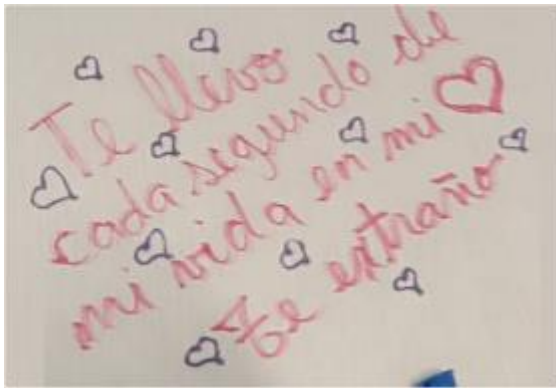 Te llevo
cada segundo de
mi vida en mi
Te extraño